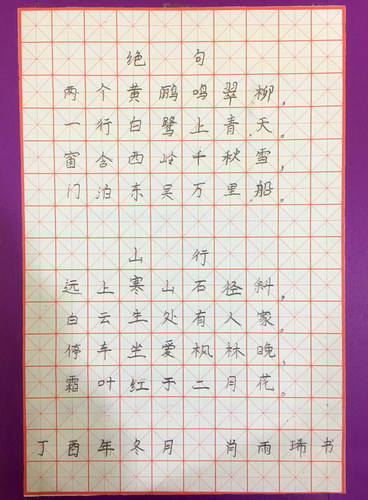 绝句
两个黄鹂鸣翠柳,
一行白鹭上青天。
窗含西岭千秋雪,
门泊东吴万里船。
山行
远上寒山石径斜,
白云生处有人家。
停车坐爱枫林晚,
霜叶红于二月花。
丁酉年冬月 肖雨琋书